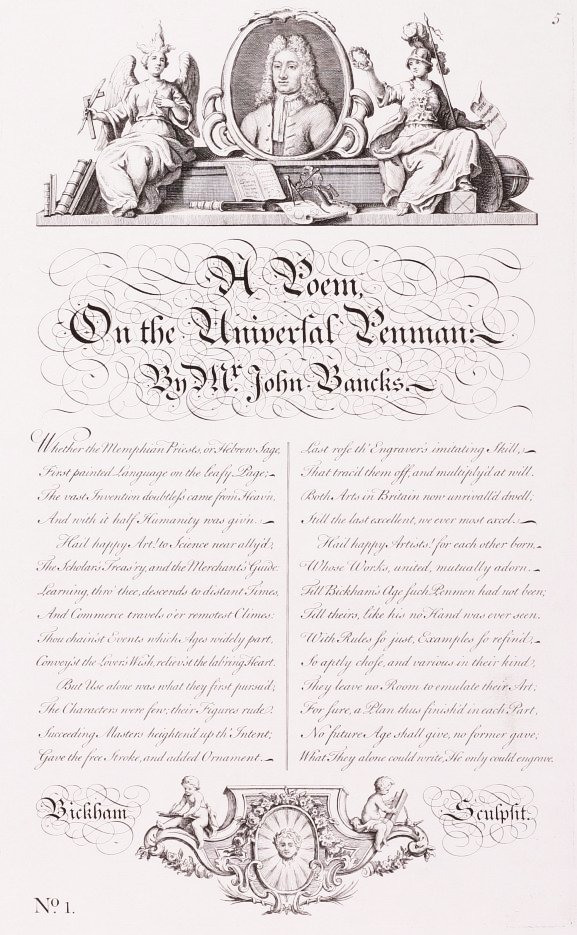 5
A Poem,
On the Univerſal Penman:
By Mr. John Bancks.
Whether the Memphian Priests, or Hebrew Sage,
First painted Language on the Leafy Page;
The vast Invention doubtleſs came from Heav'n,
And with it half Humanity was giv'n.
Hail happy Art! to Science near ally'd;
The Scholar's Treas'ry, and the Merchant's Guide.
Learning, thro' thee, descends to distant Times,
And Commerce travels o'er remotest Climes:
Thou chain'st Events which Ages widely part,
Convey'st the Lover's Wish, reliev'st the lab'ring Heart.
But Use alone was what they first pursu'd;
The Characters were few, their Figures rude:
Succeeding Masters heighten'd up th' Intent;
Gave the free Stroke, and added Ornament.
Last roſe th' Engraver's imitating Skill,
That trac'd them off, and multiply'd at will.
Both Arts in Britain now unrivall'd dwell;
Still the last excellent, we ever most excel.
Hail happy Artists! for each other born,
Whose Works, united, mutually adorn.
Till Bickham's Age ſuch Penmen had not been;
Till theirs, like his no Hand was ever seen.
With Rules ſo just, Examples ſo refin'd;
So aptly chose, and various in their kind,
They leave no Room to emulate their Art;
For ſure, a Plan thus finish'd in each Part,
No future Age shall give, no former gave;
What They alone could write, He only could engrave.
Bickham
Sculpſit.
No. 1.